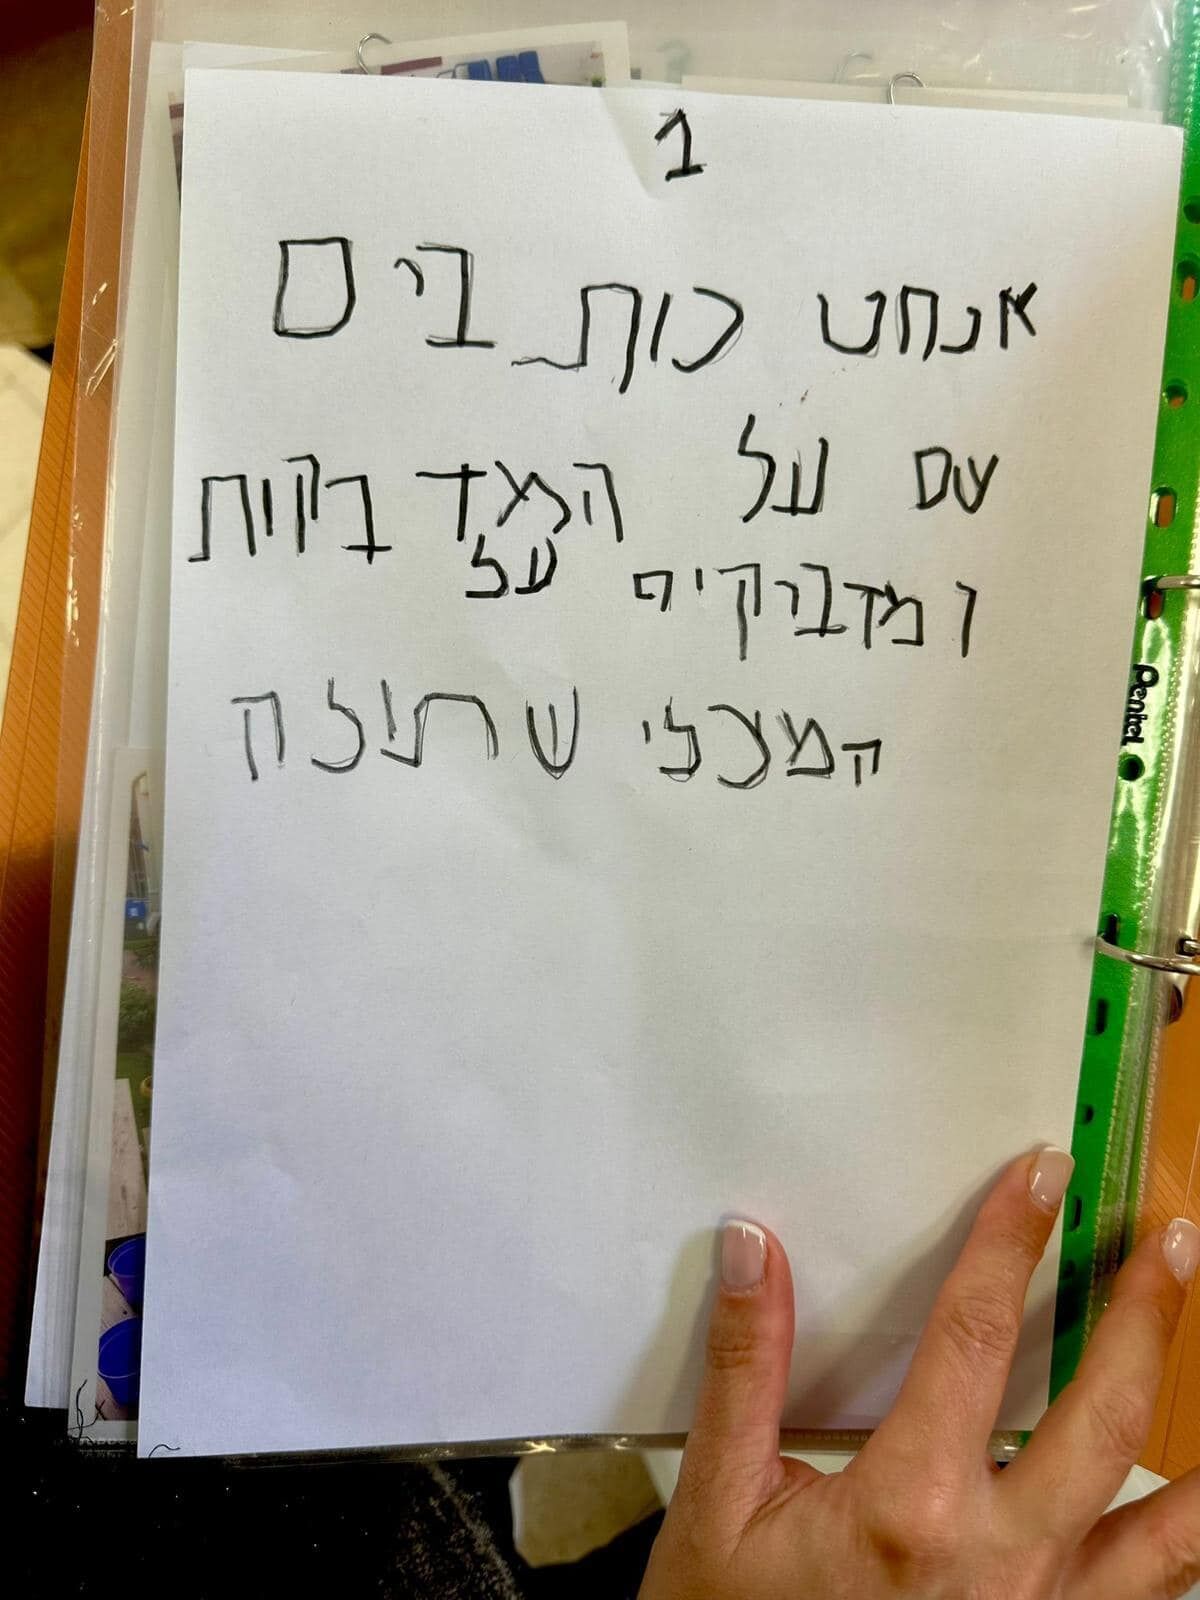 1
אנחנו כותבים
שם על המדבקות
ומדבקים על
המכלי שתולה
Pentel